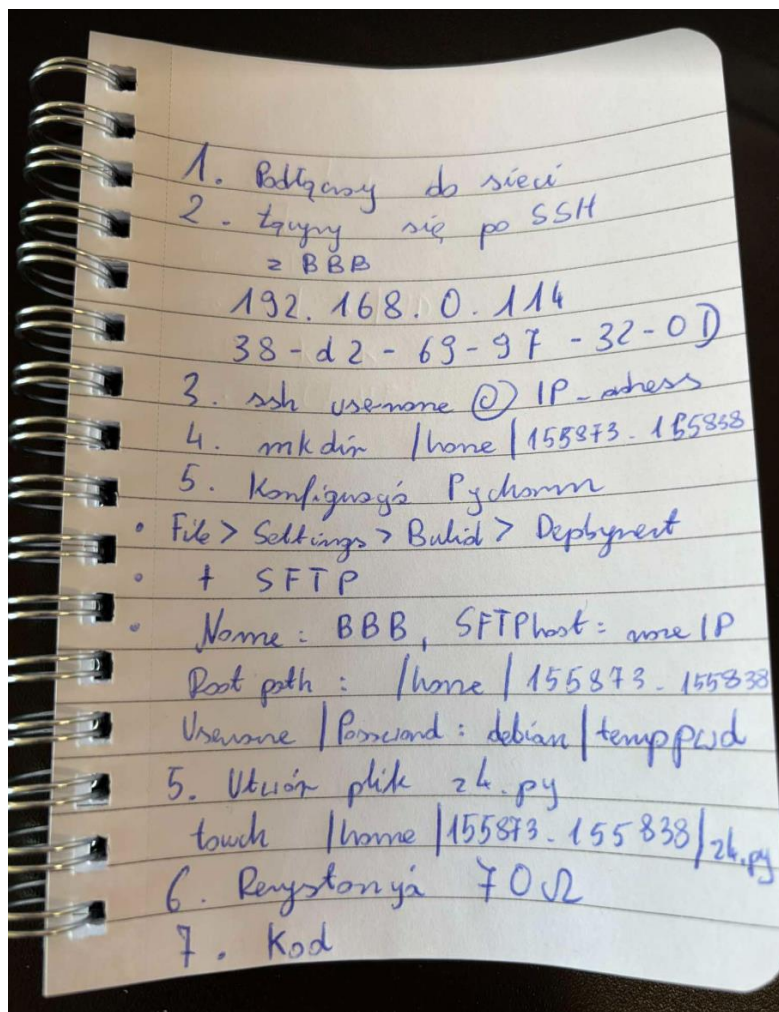 1. Podłączasy do sieci
2. Łączymy się po SSH
z BBB
192.168.0.114
38-d2-69-97-32-0D
3. ssh username @ IP-adress
4. mkdir /home/155873-155838
5. Konfiguracja Pycharm
• File > Settings > Bulid > Deployment
• + SFTP
• Name: BBB, SFTPhost: nasze IP
Root path: /home/155873-155838
Username/Password: debian/temppwd
5. Utwórz plik z4.py
touch /home/155873-155838/z4.py
6. 70Ω
7. Kod